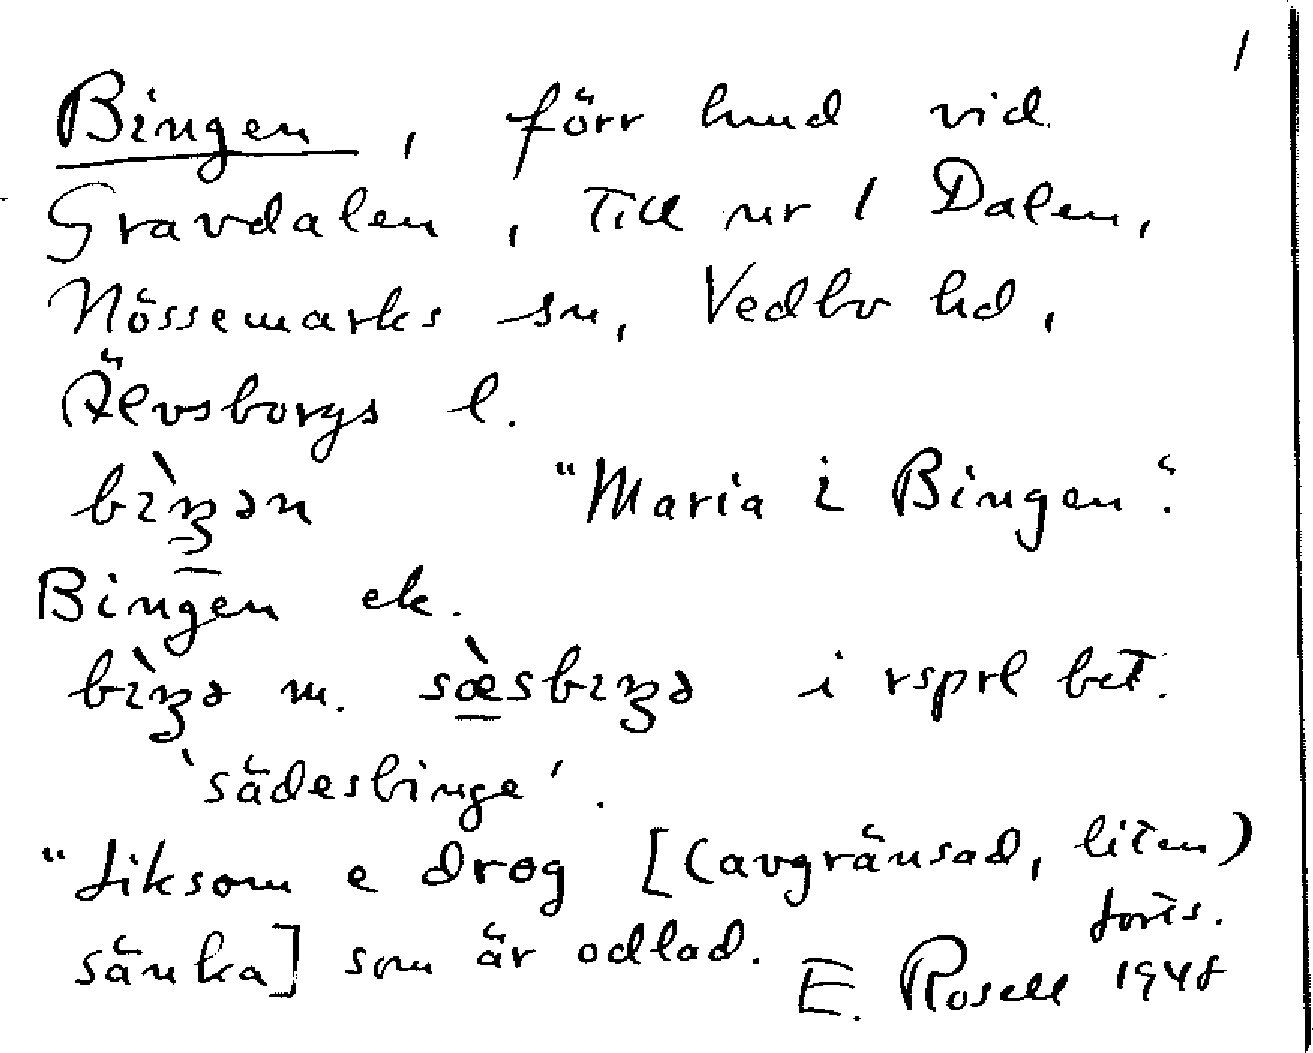 1
Bingen, förr lund vid
Gravdalen, till nr 1 Dalen,
Nössemarks sn, Vedbo hd,
Älvsborgs l.
"Maria i Bingen".
Bingen ek.
m. i rsprl bet.
'sädesbinge'.
"liksom e drog [(avgränsad, liten)
forts.
sänka] som är odlad.
E. Rosell 1948